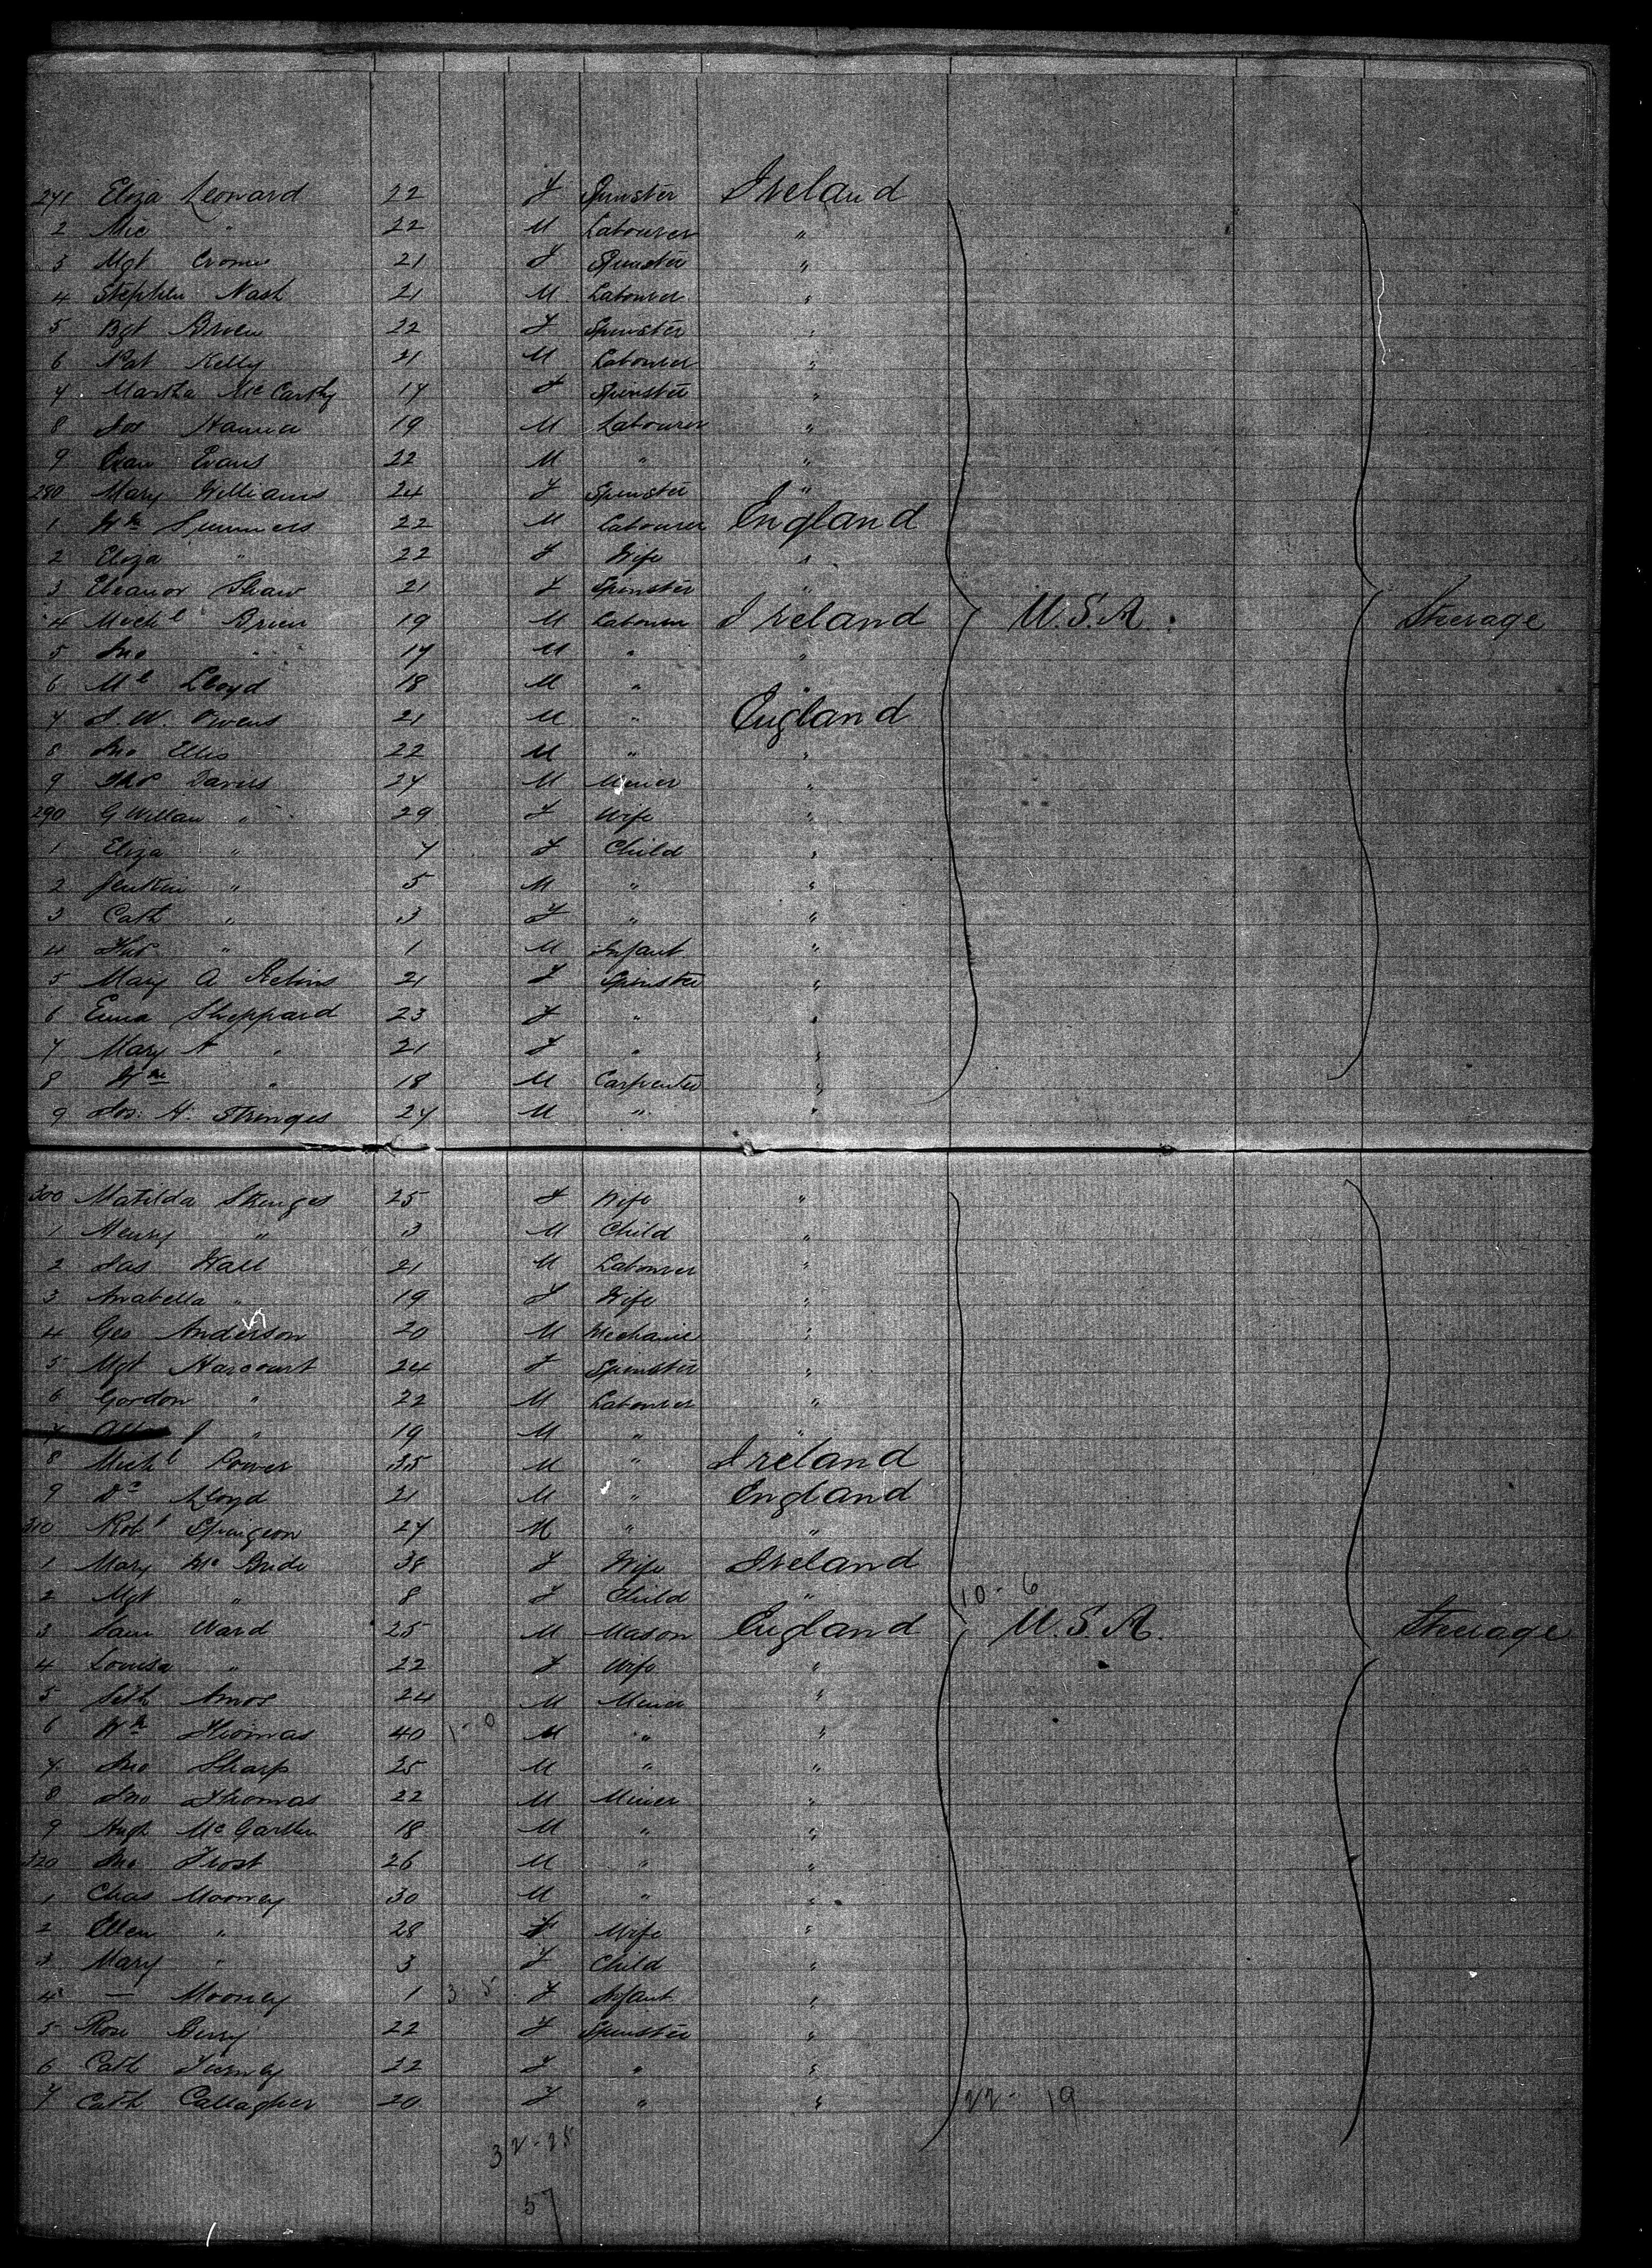 271 Eliza Leonard 22 F Spinster Ireland
2 Mic " 22 M Labourer "
3 Mgt 21 F Spinster "
4 Stephen Nash 21 M Labourer "
5 Bgt Brien 22 F Spinster "
6 Pat Kelly 21 M Labourer "
7 Martha McCarthy 17 F Spinster "
8 19 M Labourer "
9 Evan Evans 22 M " "
280 Mary Williams 24 F Spinster "
1 Wm Summers 22 M Labourer England
2 Eliza " 22 F Wife "
3 Eleanor Shaw 21 F Spinster "
4 Michl Brien 19 M Labourer Ireland U.S.A. Steerage
5 Jno " 17 M " "
6 Ml Lloyd 18 M " "
7 J. W. Owens 21 M " England
8 Jno Ellis 22 M " "
9 Thos Davies 27 M Miner "
290 " 29 F Wife "
1 Eliza " 7 F Child "
2 Jenkin " 5 M " "
3 Cath " 3 F " "
4 " 1 M Infant "
5 Mary A 21 F Spinster "
6 Emma Sheppard 23 F " "
7 Mary A " 21 F " "
8 Wm " 18 M Carpenter "
9 Jos. H. Stringes 27 M " "
300 Matilda Stringes 25 F Wife "
1 Henry " 3 M Child "
2 Jas Wall 21 M Labourer "
3 Anabella " 19 F Wife "
4 Geo Anderson 20 M Mechanic "
5 Mgt Harcourt 24 F Spinster "
6 Gordon " 22 M Labourer "
7 " 19 M " "
8 Michl Power 35 M " Ireland
9 Lloyd 21 M " England
310 Robt Spurgeon 27 M " "
1 Mary McBride 38 F Wife Ireland
2 Mgt " 8 F Child " 10-6
3 Sam Ward 25 M Mason England U.S.A. Steerage
4 Louisa " 22 F Wife "
5 Seth Amos 24 M Miner "
6 Wm Thomas 40 1-0 M " "
7 Jno Sharp 25 M " "
8 Jno Thomas 22 M Miner "
9 Hugh 18 M " "
320 Jno Frost 26 M " "
1 Chas Mooney 30 M " "
2 Ellen " 28 F Wife "
3 Mary " 3 F Child "
4 — Mooney 1 3-5 F Infant "
5 Rose 22 F Spinster "
6 Cath 22 F " "
7 Cath Callagher 20 F " " 22-19
32-25
57